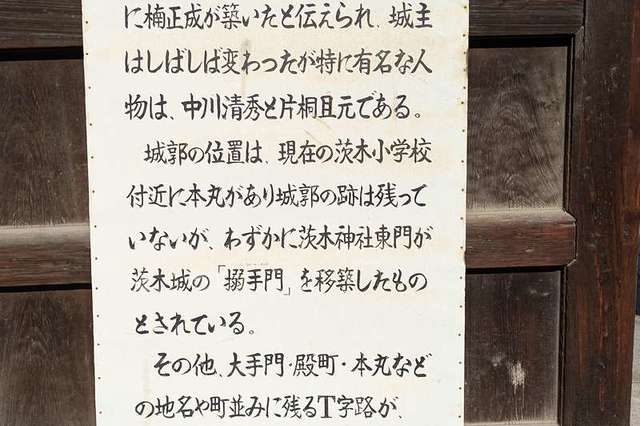 に楠正成が築いたと伝えられ、城主
はしばしば変わったが特に有名な人
物は、中川清秀と片桐且元である。
城郭の位置は、現在の茨木小学校
付近に本丸があり城郭の跡は残って
いないが、わずかに茨木神社東門が
茨木城の「搦手門」を移築したもの
とされている。
その他、大手門・殿町・本丸など
の地名や町並みに残るT字路が、